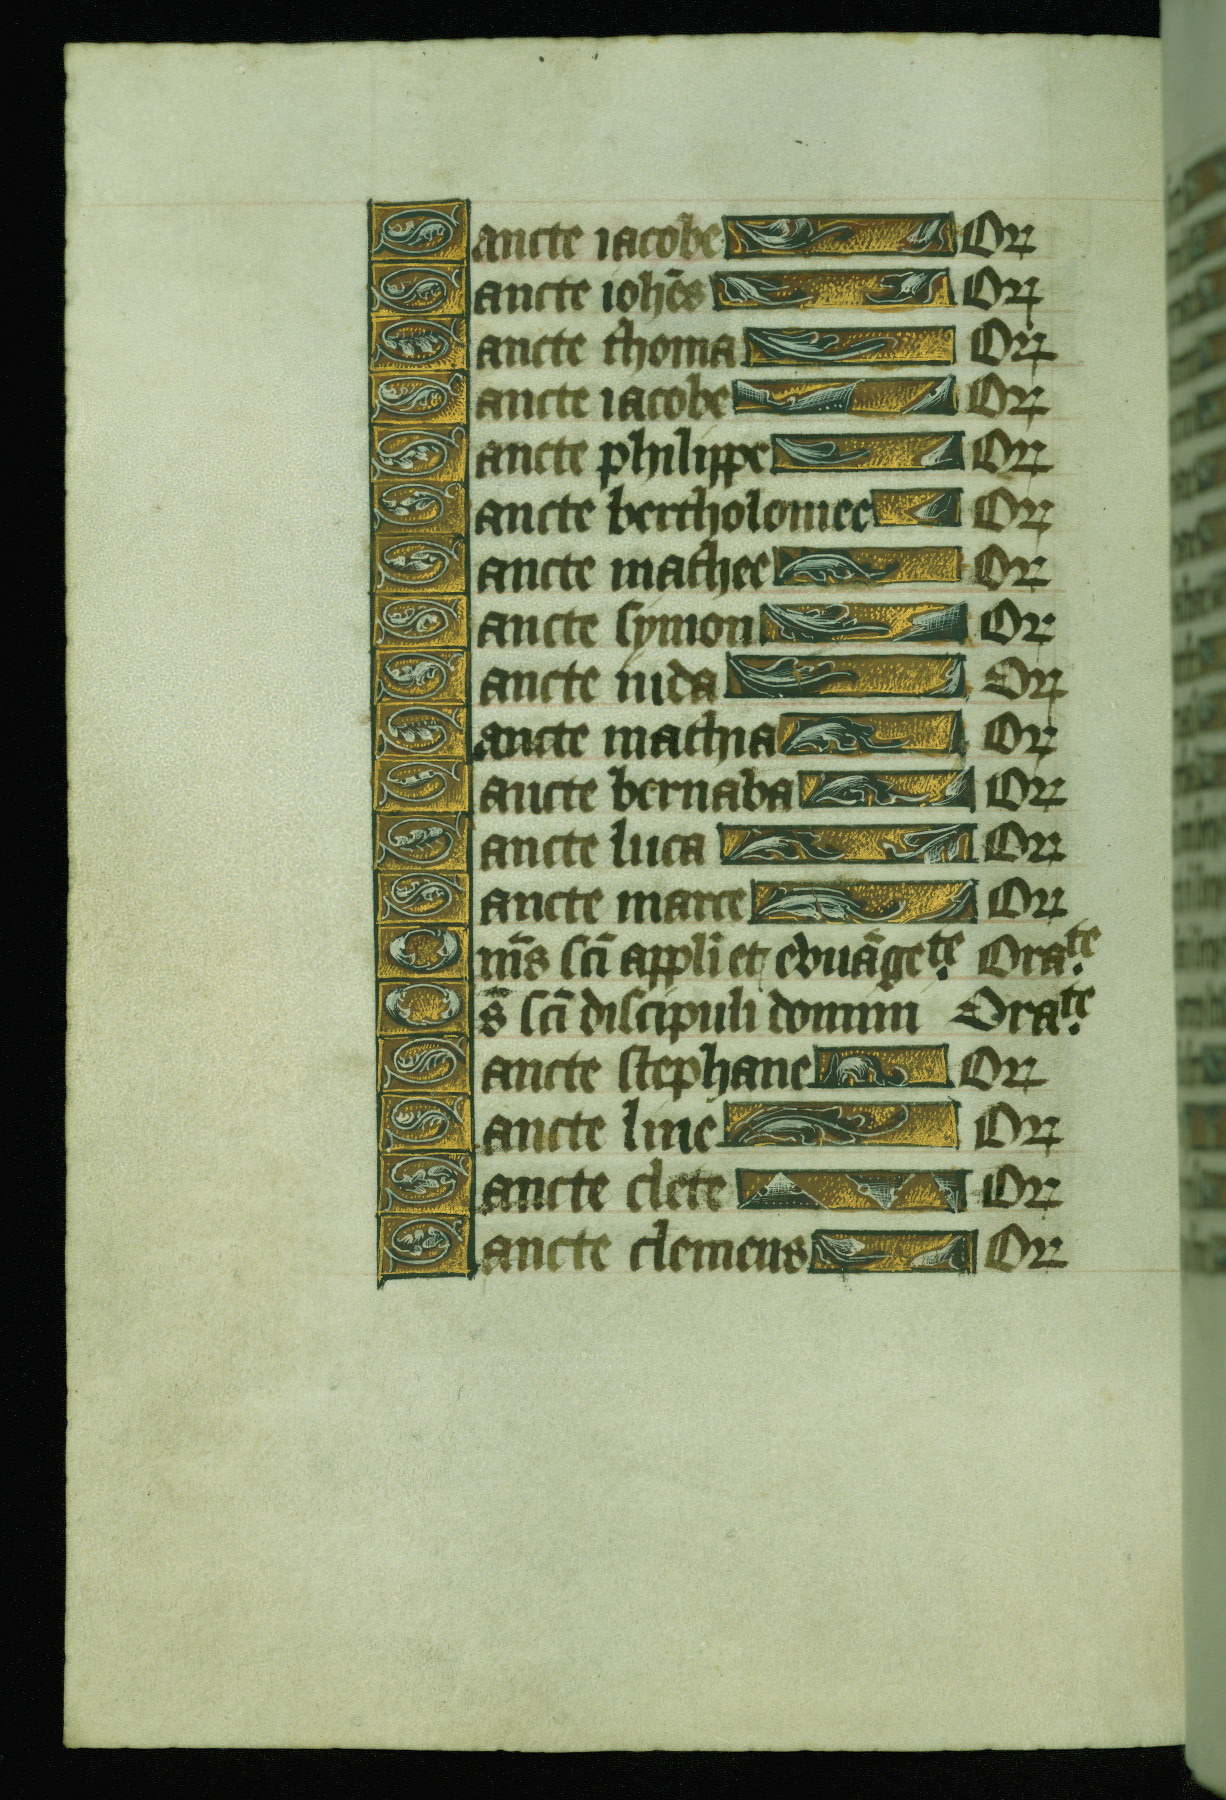 Sancte iacobe Or
Sancte ioh̄es Or
Sancte thoma Or
Sancte iacobe Or
Sancte philippe Or
Sancte bertholomee Or
Sancte mathee Or
Sancte symon Or
Sancte iuda Or
Sancte mathia Or
Sancte bernaba Or
Sancte luca Or
Sancte marce Or
Om̄s sc̄i appl̄i et evuāgete. Orate.
Os̄ sc̄i discipuli domini Orate.
Sancte stephane Or
Sancte line Or
Sancte clete Or
Sancte clemens Or